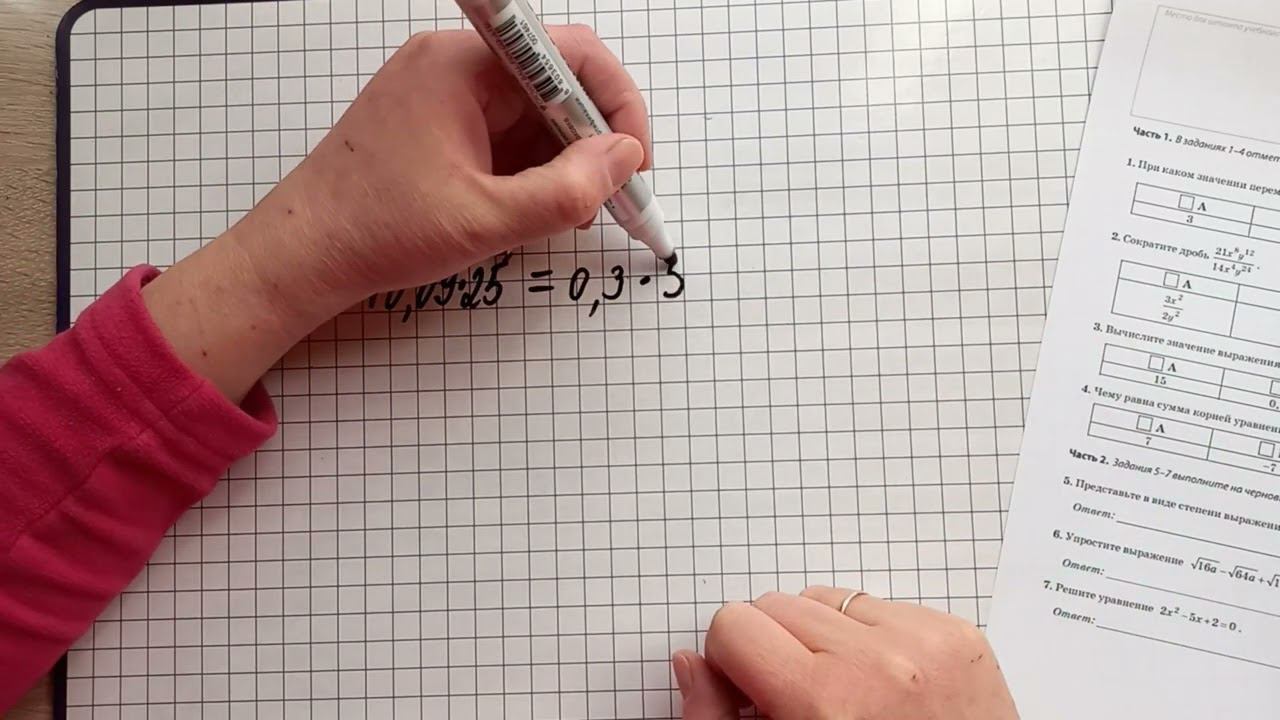 0,09·25 = 0,3·5
Место для штампа
Часть 1. В заданиях 1–4 отмет
1. При каком значении перем
А
3
2. Сократите дробь 21x⁸y¹²/14x⁴y²⁴.
А
3x²/2y²
3. Вычислите значение выражения
А
15
0,
4. Чему равна сумма корней уравнени
А
7
−7
Часть 2. Задания 5–7 выполните на чернов
5. Представьте в виде степени выражени
Ответ:
6. Упростите выражение √16a − √64a + √1
Ответ:
7. Решите уравнение 2x² − 5x + 2 = 0.
Ответ: